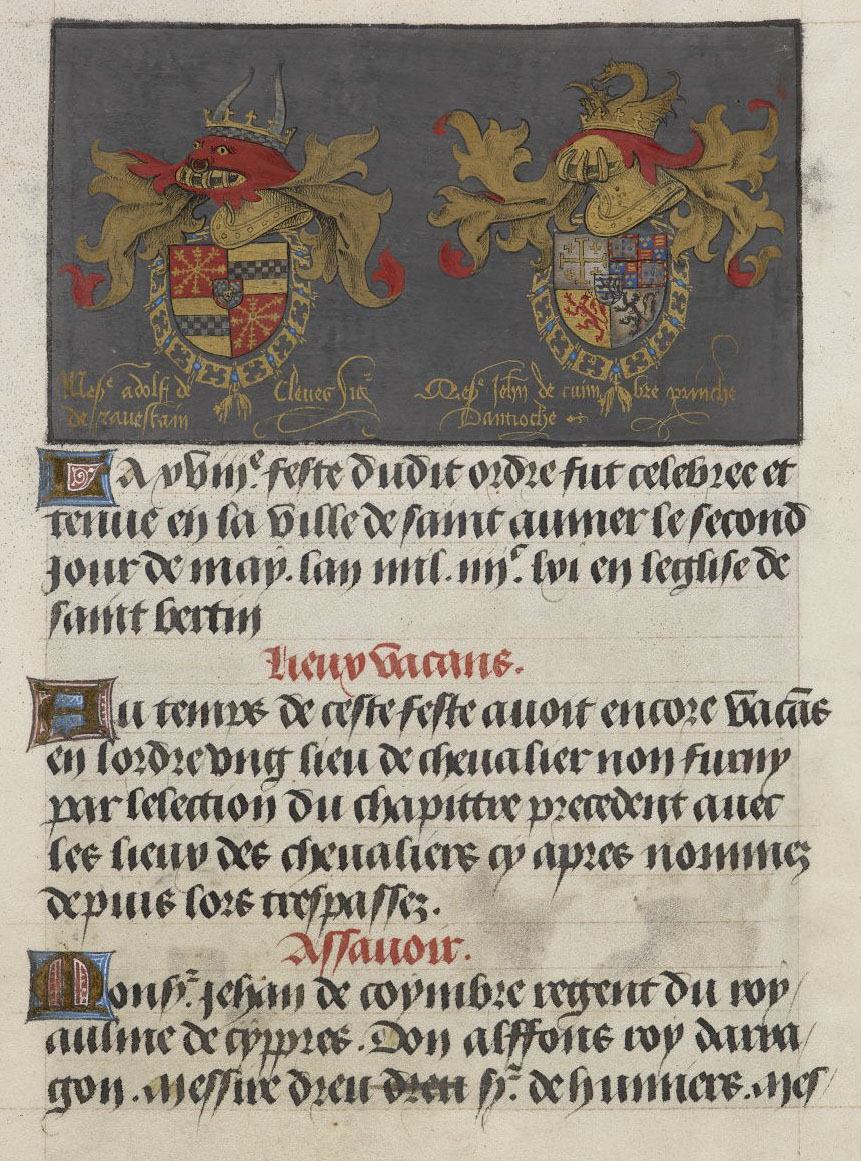 Mess.e adolf de Cleves sig.r
de ravestain
Mess.e Jehn de cuimbre prinche
Dantioche
La xviii.e feste dudit ordre fut celebree et
tenue en la ville de saint aumer le second
jour de may. lan mil. iiii.c lxi en leglise de
saint bertin
Lieux vacans.
Au temps de ceste feste avoit encore vacās
en lordre ung lieu de chevalier non furny
par lelection du chapittre precedent avec
les lieux des chevaliers cy apres nommez
depuis lors trespassez.
Assavoir.
Mons.r Jehan de coymbre regent du roy/
aulme de cyppres. Don alffons roy darra/
gon. Messire dreu dreu s.r de humieres. Mes/